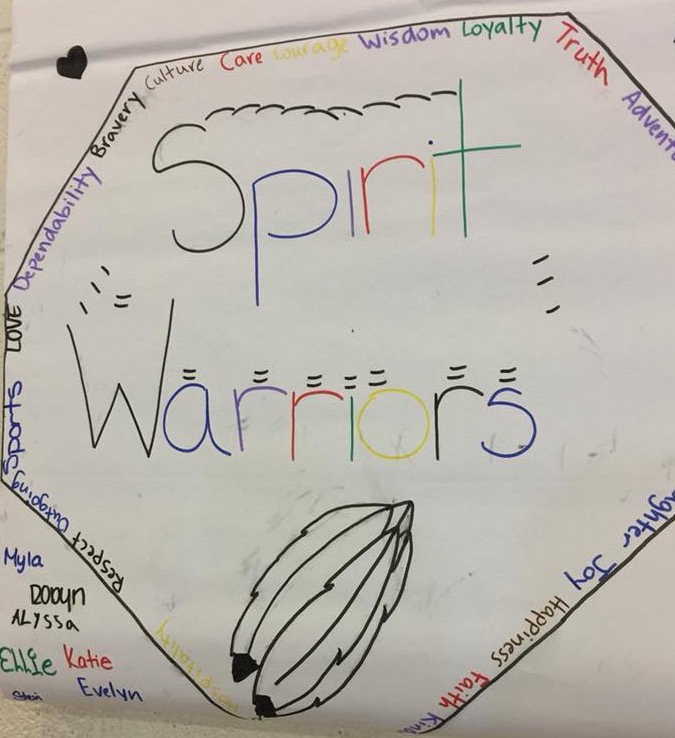 Bravery Culture Care Courage Wisdom Loyalty Truth Advent
Spirit
Warriors
Dependability
LOVE
Sports
Outgoing
Respect
Hospitality
ghter
Joy
Happiness
Faith
Kin
Myla
ALYSSA
Ellie Katie
Evelyn